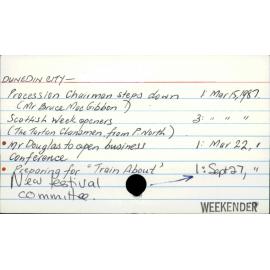 DUNEDIN CITY—
Procession Chairman steps down 1: Mar 15, 1987.
(Mr Bruce MacGibbon?)
Scottish Week openers 3: " " "
(The Tartan Clansmen, from P North)
• Mr Douglas to open business 1: Mar 22, "
Conference
• Preparing for "Train About" 1: Sept 27, "
New festival
committee.
WEEKENDER